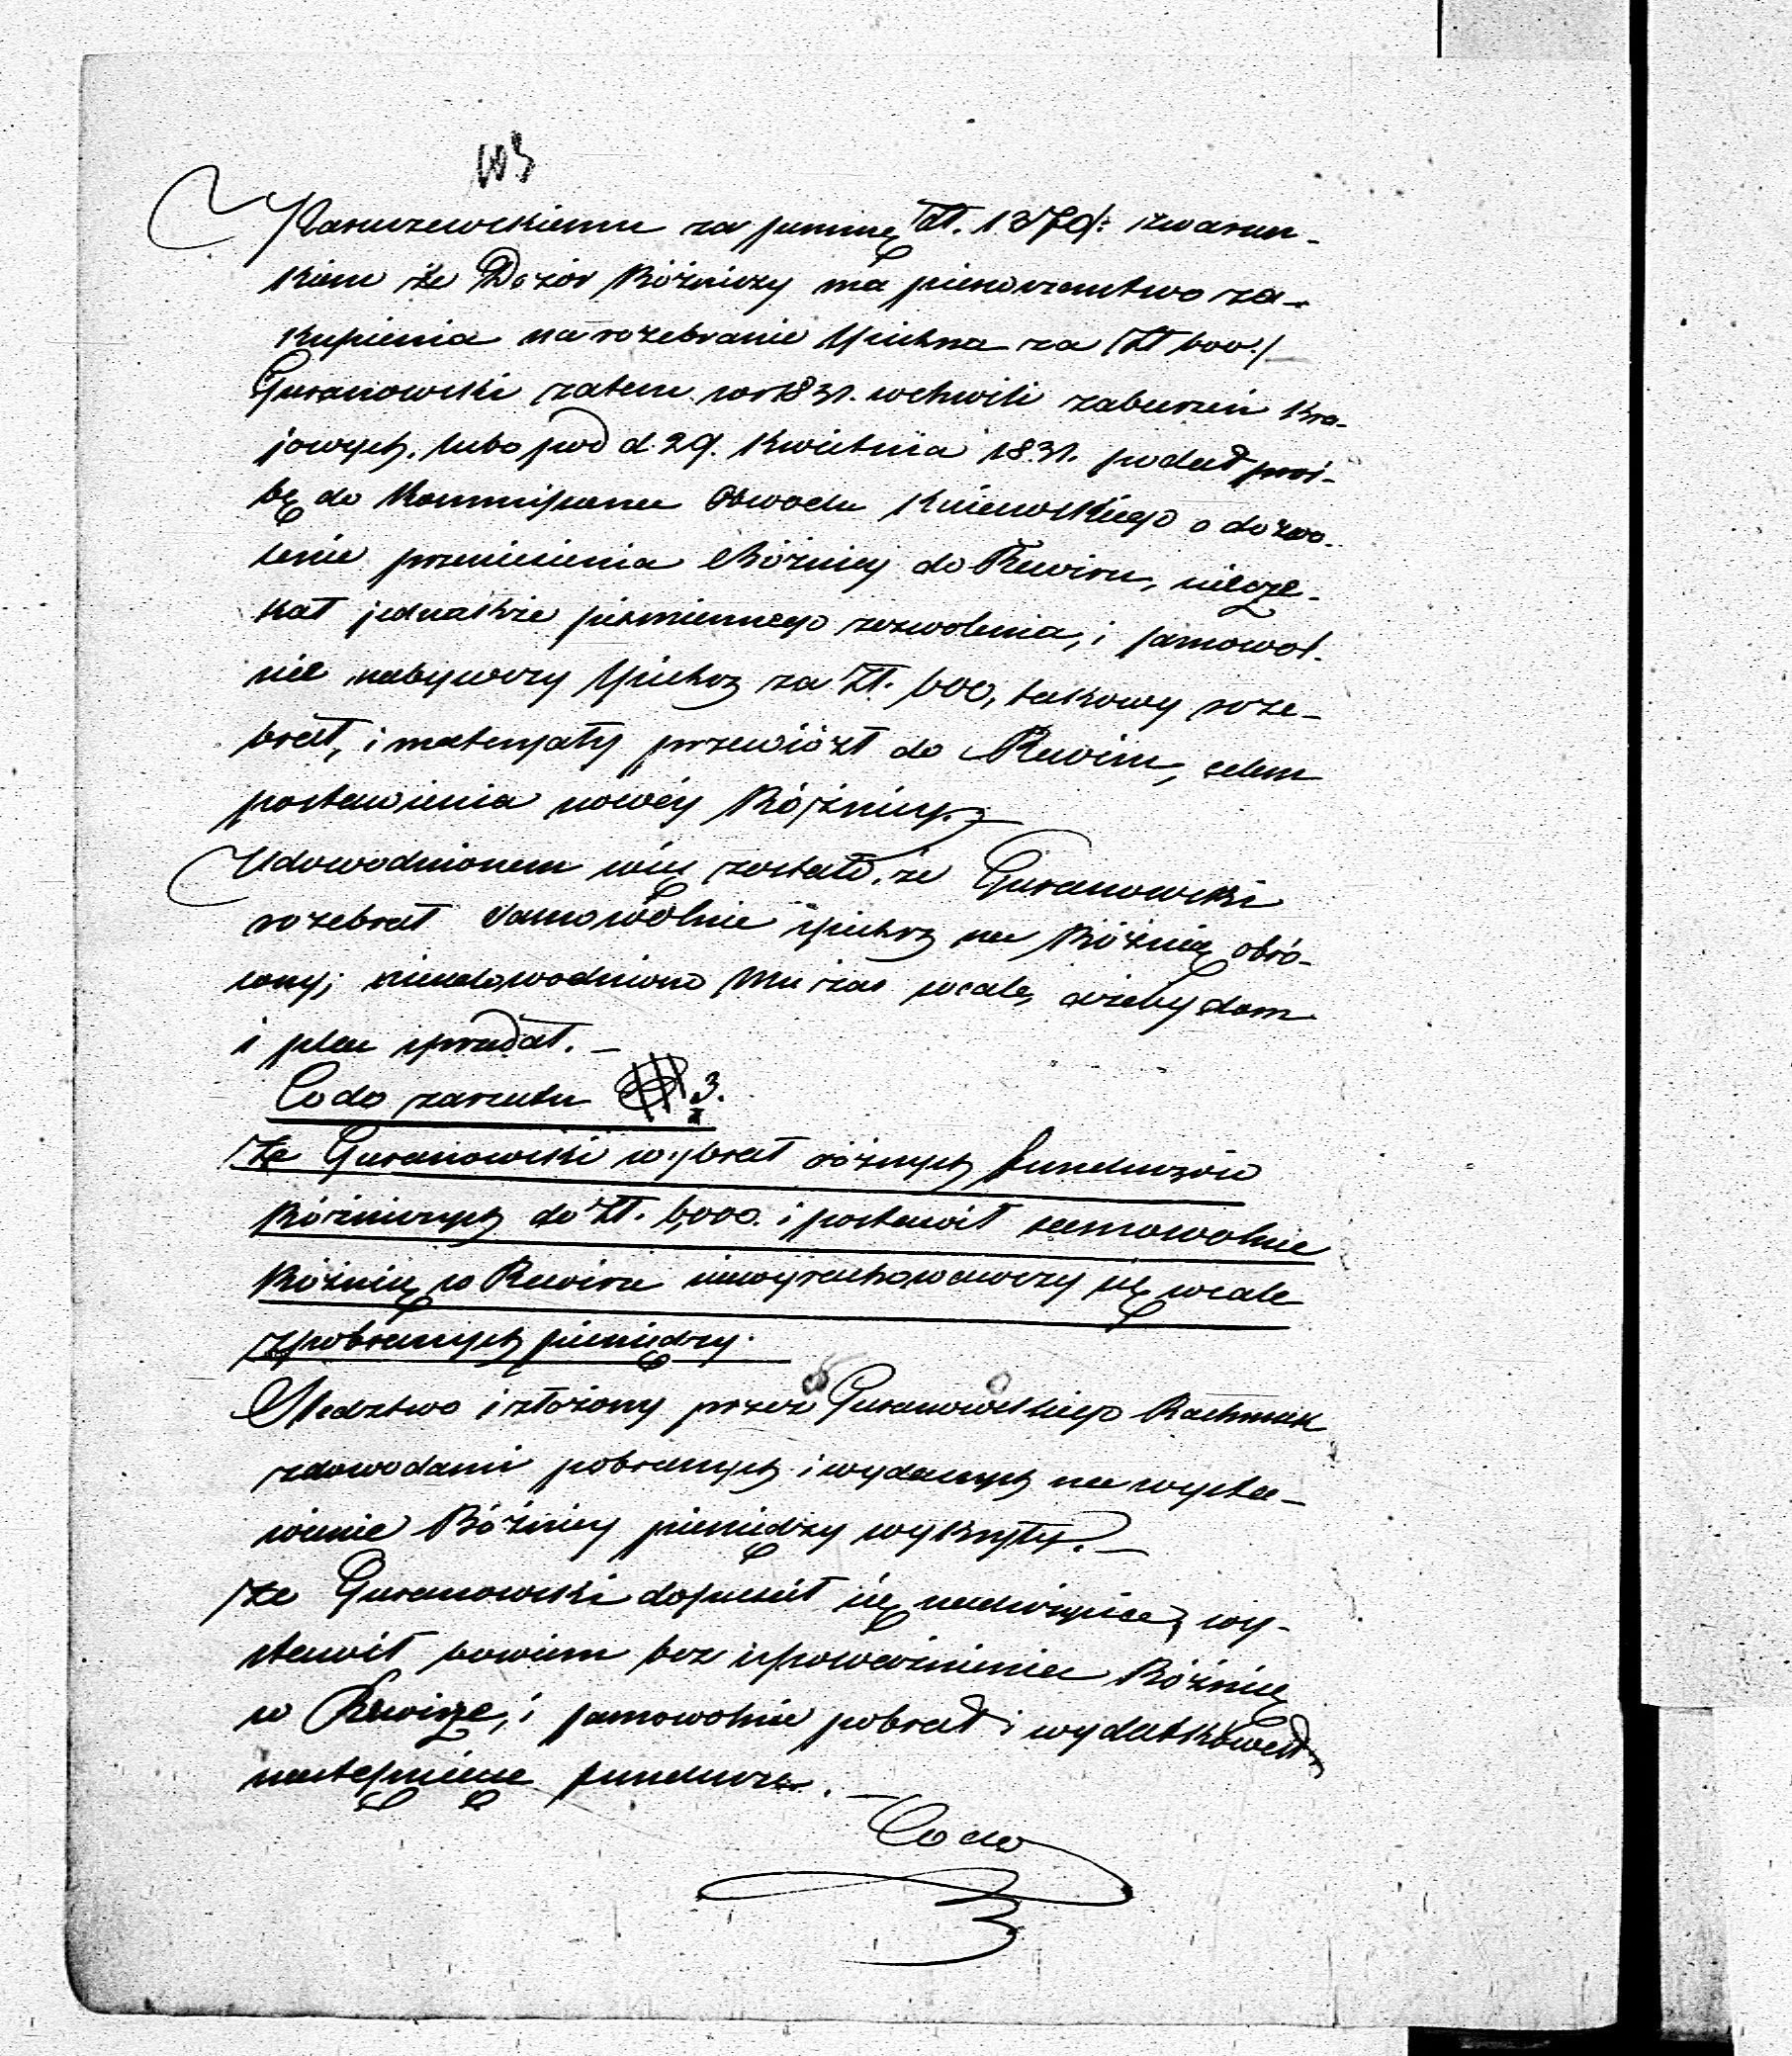 103
Karuszewskiemu za summę Zł. 1370/: z waran-
kiem że Dozór Bóźniczy ma pierwszeństwo za-
kupienia na rozebranie Spichrza za Zł 600./
Guranowski zatem w r 1831. w chwili zaburzeń kra-
jowych, lubo pod d. 29. Kwietnia 1831. podał proś-
bę do Kommissarza Obwodu Kujawskiego o dozwo-
lenie przeniesienia Bóżnicy do Rewiru, niecze-
kał jednakże piśmiennego zezwolenia, i samowol-
nie nabywszy Spichrz za Zł. 600, takowy roze-
brał, i materyały przewiózł do Rewiru, celem
postawienia nowéy Bóżnicy.
Udowodnionem więc zostało, że Guranowski
rozebrał samowolnie spichrz na Bóżnicę obró-
cony; nieudowodniono Mu zaś wcale, ażeby dom
i plac sprzedał. –
Co do zarzutu 3.
Że Guranowski wybrał różnych funduszów
Bóżniczych do Zł. 6,000. i postawił samowolnie
Bóżnicę w Rewirze niewyrachowawszy się wcale
z pobranych pieniędzy.
Śledztwo i złożony przez Guranowskiego Rachunek
z dowodami pobranych i wydanych na wysta-
wienie Bóżnicy pieniędzy wykryły. –
Że Guranowski dopuścił się nadużycia, wy-
stawił bowiem bez upoważnienia Bóżnicę
w Rewirze, i samowolnie pobrał i wydatkował
następujące fundusze. –
Co do